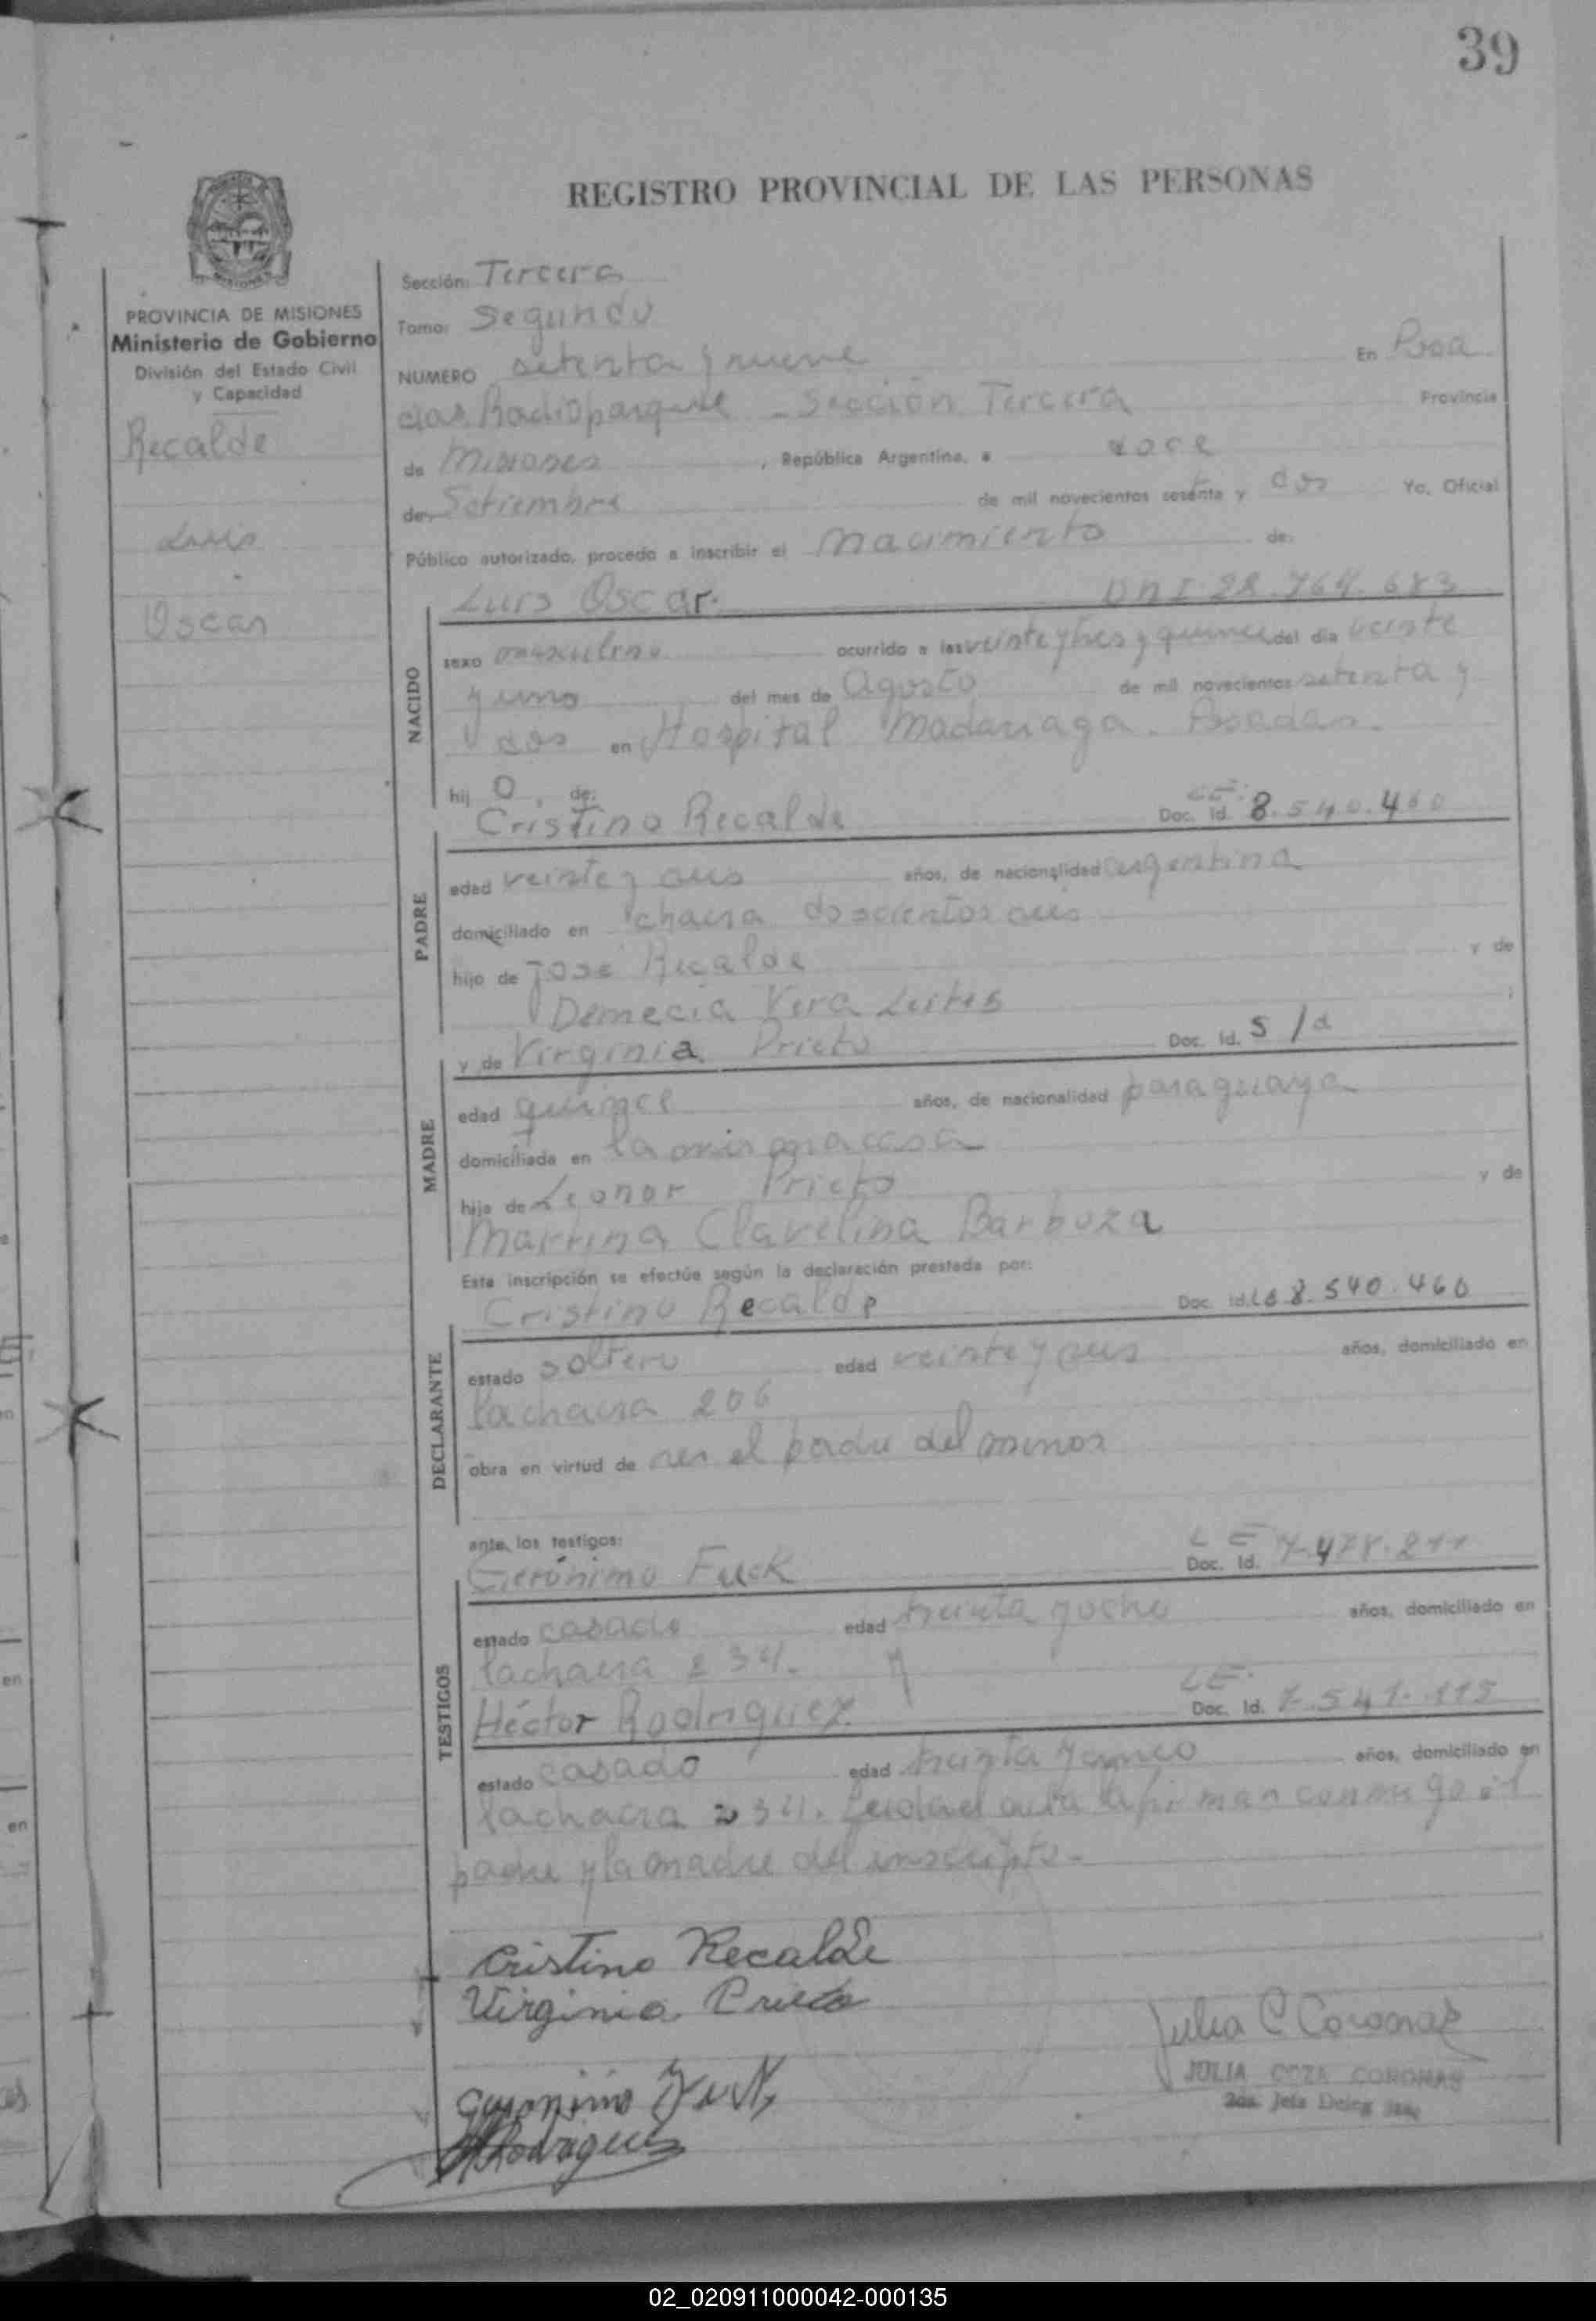 39
REGISTRO PROVINCIAL DE LAS PERSONAS
PROVINCIA DE MISIONES
Ministerio de Gobierno
División del Estado Civil
y Capacidad
Recalde
Luis
Oscar
Sección: Tercera
Tomo: Segundo
NUMERO setenta y nueve En Posa
das Radioparque - Sección Tercera Provincia
de Misiones, República Argentina, a doce
de Setiembre de mil novecientos sesenta y dos Yo, Oficial
Público autorizado, procedo a inscribir el Nacimiento de:
NACIDO
Luis Oscar. DNI 28.764.683
sexo masculino ocurrido a las veinte y tres y quince del día veinte
y uno del mes de Agosto de mil novecientos setenta y
dos en Hospital Madariaga. Posadas.
hij o, de:
PADRE
Cristino Recalde Doc. Id. LE. 8.540.460
edad veinte y años, de nacionalidad argentina
domiciliado en chacra doscientos seis
hijo de José Recalde y de
Demecia Vera Leites
MADRE
y de Virginia Prieto Doc. Id. S/d
edad quince años, de nacionalidad paraguaya
domiciliada en la misma casa
hija de Leonor Prieto y de
Martina Clavelina Barboza
Esta inscripción se efectúa según la declaración prestada por:
DECLARANTE
Cristino Recalde Doc. Id. LE 8.540.460
estado soltero edad veinte y años, domiciliado en
la chacra 206
obra en virtud de ser el padre del menor
ante los testigos:
TESTIGOS
Gerónimo Fuck LE Doc. Id. 7.478.211
estado casado edad treinta y ocho años, domiciliado en
la chacra 234. y
Héctor Rodriguez LE. Doc. Id. 7.541.115
estado casado edad treinta y cinco años, domiciliado en
la chacra 234. Leida el acta la firman conmigo el
padre y la madre del inscripto.-
Cristino Recalde
Virginia Prieto
Julia C Coronas
JULIA COZA CORONAS
Geronimo Fuck
HRodriguez
02_020911000042-000135